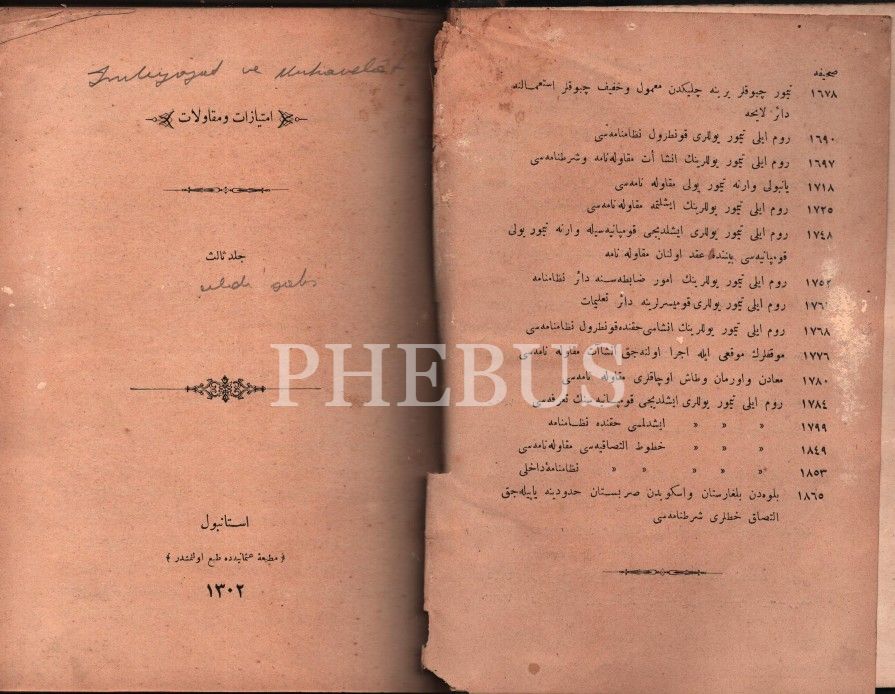 Imtiyazat ve Mukavelât
امتیازات و مقاولات
جلد ثالث
استانبول
﴿ مطبعهٔ عثمانیه‌ده طبع اولنمشدر ﴾
١٣٠٢
صحیفه
١٦٧٨ تیمور چبوقلر یرینه چلیکدن معمول و خفیف چبوقلر استعمالنه
دائر لایحه
١٦٩٠ روم ایلی تیمور یوللری قونطرول نظامنامه‌سی
١٦٩٧ روم ایلی تیمور یوللرینك انشاأت مقاوله‌نامه و شرطنامه‌سی
١٧١٨ یانبولی وارنه تیمور یولی مقاوله نامه‌سی
١٧٢٥ روم ایلی تیمور یوللرینك ایشلتمه مقاوله‌نامه‌سی
١٧٤٨ روم ایلی تیمور یوللری ایشلدیجی قومپانیه‌سیله وارنه تیمور یولی
قومپانیه‌سی بیننده عقد اولنان مقاوله نامه
١٧٥٢ روم ایلی تیمور یوللرینك امور ضابطه‌سنه دائر نظامنامه
روم ایلی تیمور یوللری قومیسرلرینه دائر تعلیمات
١٧٦٨ روم ایلی تیمور یوللرینك انشاسی حقنده قونطرول نظامنامه‌سی
١٧٧٦ موقفلرك موقعی ایله اجرا اولنه‌جق انشاأت مقاوله نامه‌سی
١٧٨٠ معادن و اورمان و طاش اوجاقلری مقاوله نامه‌سی
١٧٨٤ روم ایلی تیمور یوللری ایشلدیجی قومپانیه‌سنك تعرفه‌سی
١٧٩٩ » » » ایشلدلمسی حقنده نظامنامه
١٨٤٩ » » » خطوط التصاقیه‌سی مقاوله‌نامه‌سی
١٨٥٣ » » » » نظامنامهٔ داخلی
١٨٦٥ بلوه‌دن بلغارستان و اسکوبدن صربستان حدودینه یاپیله‌جق
التصاق خطلری شرطنامه‌سی
PHEBUS